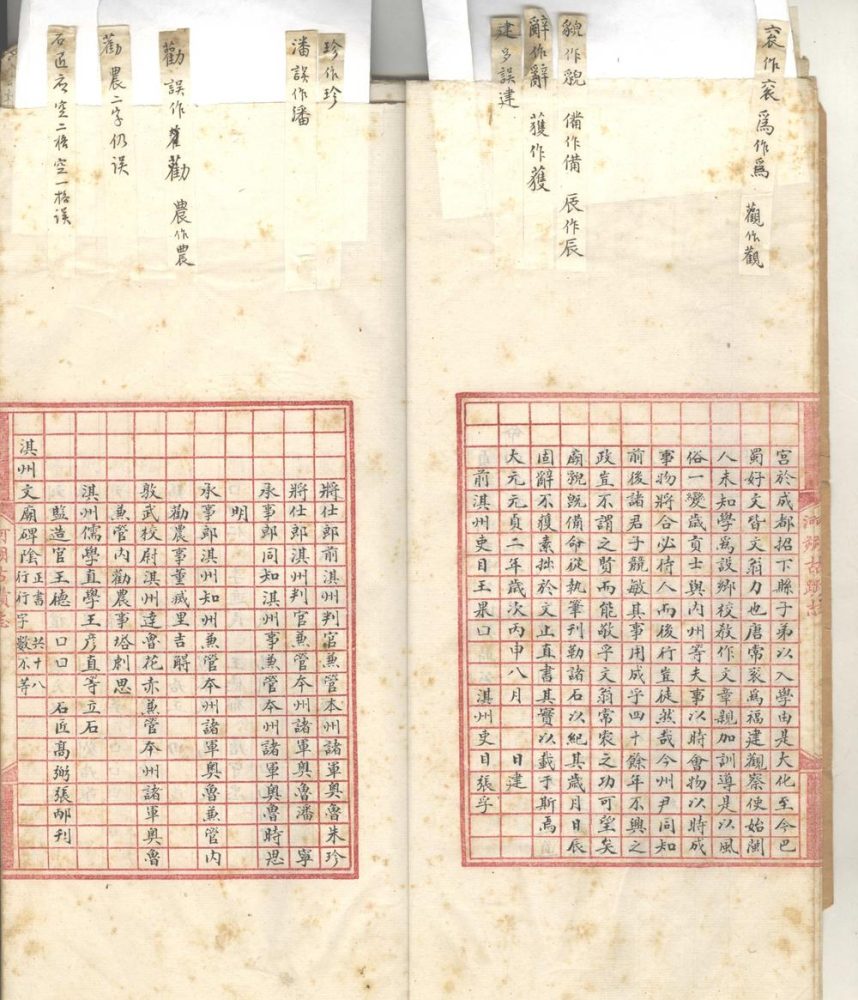 衮作衮 爲作爲 觀作觀
貌作貌 備作備 辰作辰
辭作辭 獲作獲
建多誤建
宮於成都招下縣子弟以入學由是大化至今巴
蜀好文皆文翁力也唐常衮爲福建觀察使始閩
人未知學爲設鄉校教作文章親加訓導是以風
俗一變歲貢士與內州等夫事以時會物以時成
事物將合必待人而後行豈徒然哉今州尹同知
前後諸君子競敏其事用成乎四十餘年不興之
政豈不謂之賢而能敬乎文翁常衮之功可望矣
廟貌既備命從執筆刊勒諸石以紀其歲月日辰
固辭不獲素拙於文止直書其實以載于斯焉
大元元貞二年歲次丙申八月 日建
前淇州吏目王果口 淇州吏目張孚
珍作珍
潘誤作潘
勸誤作勸 農作農
勸農二字仍误
石匠前空二格空一格误
將仕郎前淇州判官兼管本州諸軍奧魯朱珍
將仕郎淇州判官兼管本州諸軍奧魯潘寧
承事郎同知淇州事兼管本州諸軍奧魯時思
明
承事郎淇州知州兼管本州諸軍奧魯兼管內
勸農事董臧里吉䚟
敦武校尉淇州達魯花赤兼管本州諸軍奧魯
兼管內勸農事塔剌思
淇州儒學直學王彥直等立石
監造官王德 口口 石匠高弼張郁刊
淇州文廟碑陰 正書共十八行行字數不等